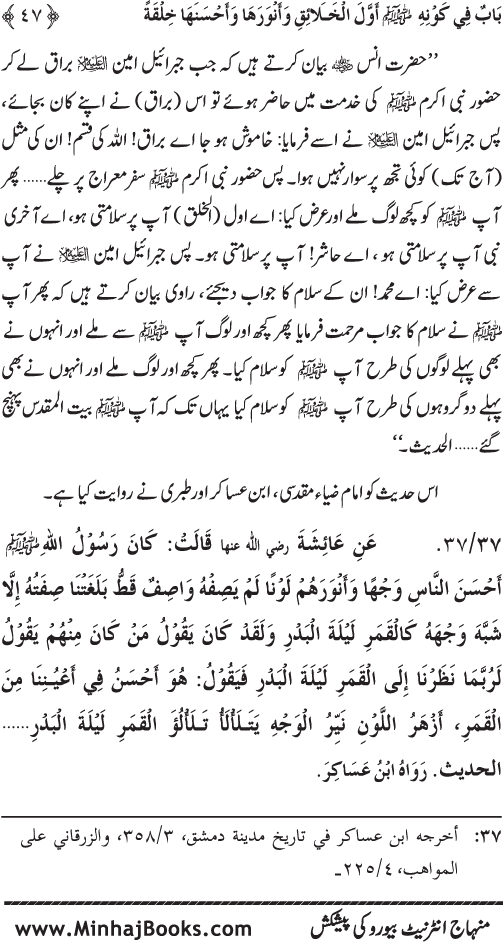 بَابٌ فِي كَوْنِهِ ﷺ أَوَّلَ الْخَلَائِقِ وَأَنْوَرَهَا وَأَحْسَنَهَا خِلْقَةً ﴿ ٤٧ ﴾
’’حضرت انس ؓ بیان کرتے ہیں کہ جب جبرائیل امین علیہ السلام براق لے کر
حضور نبی اکرم ﷺ کی خدمت میں حاضر ہوئے تو اس (براق) نے اپنے کان بجائے،
پس جبرائیل امین علیہ السلام نے اسے فرمایا: خاموش ہو جا اے براق! اللہ کی قسم! ان کی مثل
(آج تک) کوئی تجھ پر سوار نہیں ہوا۔ پس حضور نبی اکرم ﷺ سفر معراج پر چلے...... پھر
آپ ﷺ کو کچھ لوگ ملے اور عرض کیا: اے اول (الخلق) آپ پر سلامتی ہو، اے آخری
نبی آپ پر سلامتی ہو، اے حاشر! آپ پر سلامتی ہو۔ پس جبرائیل امین علیہ السلام نے آپ
سے عرض کیا: اے محمد! ان کے سلام کا جواب دیجئے، راوی بیان کرتے ہیں کہ پھر آپ
ﷺ نے سلام کا جواب مرحمت فرمایا پھر کچھ اور لوگ آپ ﷺ سے ملے اور انہوں نے
بھی پہلے لوگوں کی طرح آپ ﷺ کو سلام کیا۔ پھر کچھ اور لوگ ملے اور انہوں نے بھی
پہلے دو گروہوں کی طرح آپ ﷺ کو سلام کیا یہاں تک کہ آپ ﷺ بیت المقدس پہنچ
گئے...... الحدیث۔‘‘
اس حدیث کو امام ضیاء مقدسی، ابن عساکر اور طبری نے روایت کیا ہے۔
٣٧/٣٧. عَنِ عَائِشَةَ رضي الله عنها قَالَتْ: كَانَ رَسُوْلُ اللهِ ﷺ
أَحْسَنَ النَّاسِ وَجْهًا وَأَنْوَرَهُمْ لَوْنًا لَمْ يَصِفْهُ وَاصِفٌ قَطُّ بَلَغَتْنَا صِفَتُهُ إِلَّا
شَبَّهَ وَجْهَهُ كَالْقَمَرِ لَيْلَةَ الْبَدْرِ وَلَقَدْ كَانَ يَقُوْلُ مَنْ كَانَ مِنْهُمْ يَقُوْلُ
لَرُبَّمَا نَظَرْنَا إِلَى الْقَمَرِ لَيْلَةَ الْبَدْرِ فَيَقُوْلُ: هُوَ أَحْسَنُ فِي أَعْيُنِنَا مِنَ
الْقَمَرِ، أَزْهَرُ اللَّوْنِ نَيِّرُ الْوَجْهِ يَتَلَأْلَأُ تَلَأْلُؤَ الْقَمَرِ لَيْلَةَ الْبَدْرِ......
الحديث. رَوَاهُ ابْنُ عَسَاكِرَ.
٣٧: أخرجه ابن عساكر في تاريخ مدينة دمشق، ٣٥٨/٣، والزرقاني على
المواهب، ٢٢٥/٤۔
منہاج انٹرنیٹ بیورو کی پیشکش www.MinhajBooks.com